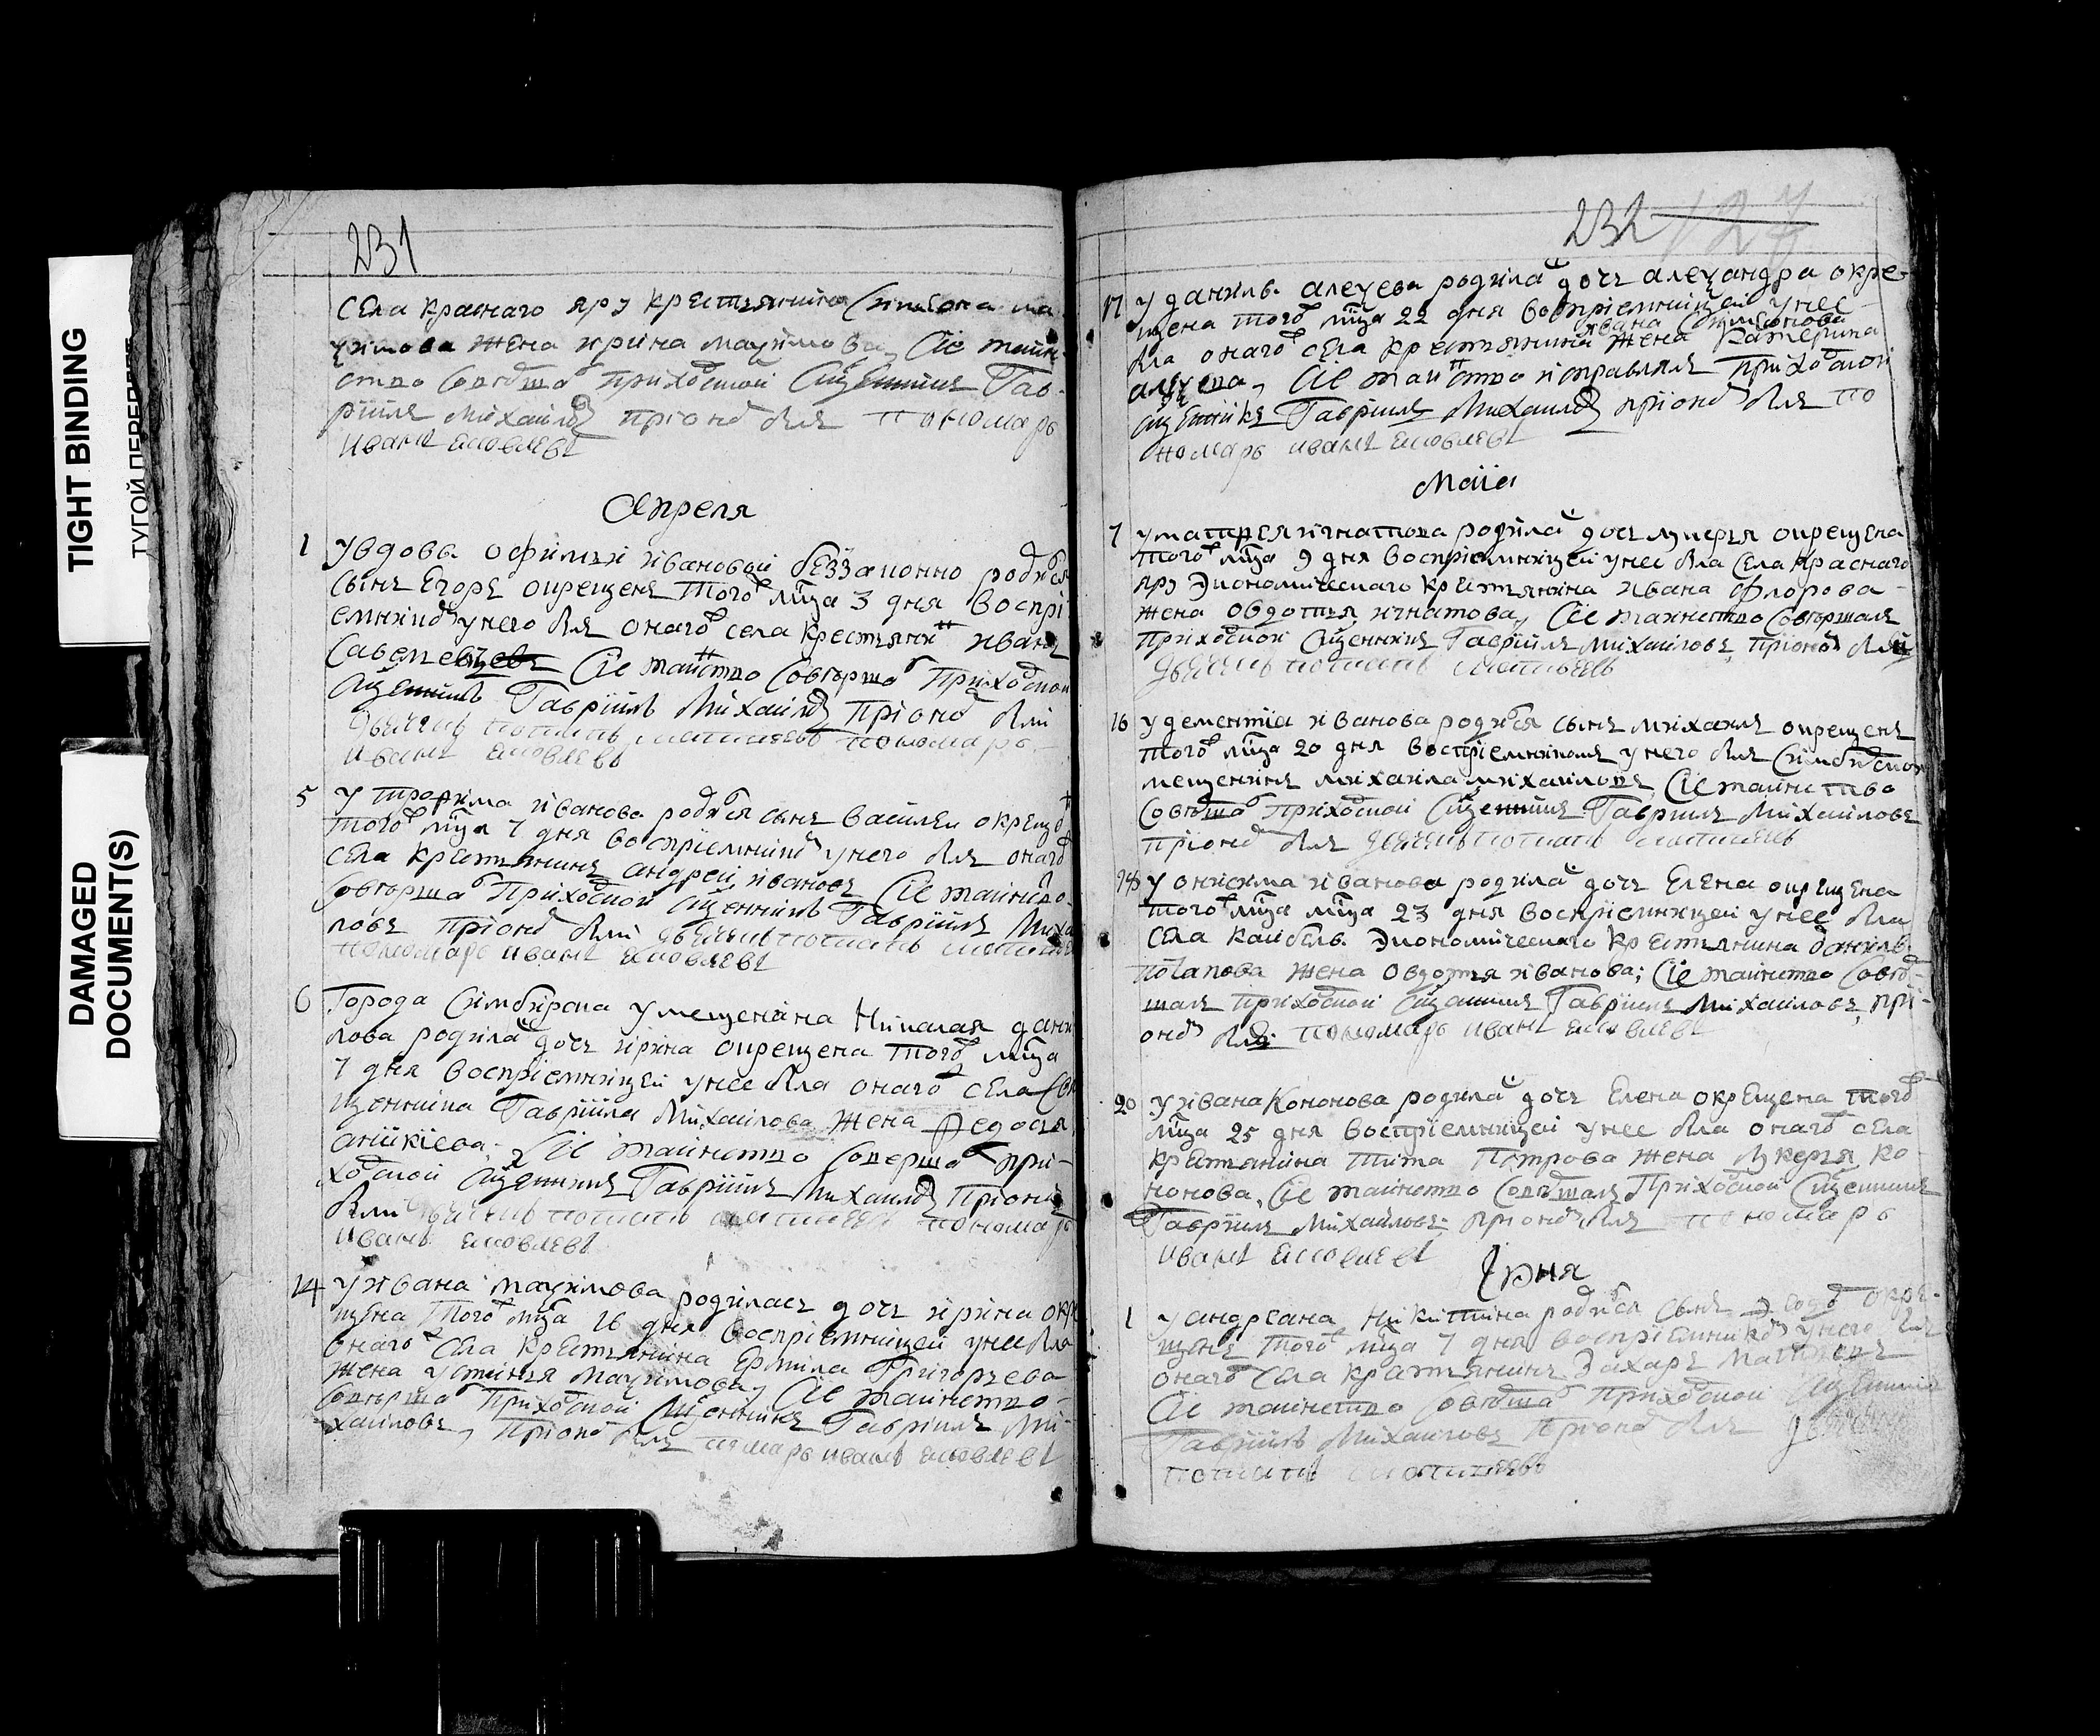 TIGHT BINDING
ТУГОЙ ПЕРЕПЛЕТ
DAMAGED
DOCUMENT(S)
231
села Краснаго яру крестьянина Симеона ма
ѯимова жена ирина маѯимова, Сіе таин
ство совершаⷧ҇ приходской Сщенникъ Гав
рїилъ Михайловъ при ономъ былъ пономарь
иванъ Яковлевъ
Апреля
1 У вдовы офимьи ивановой беззаконно родился
сынъ Егоръ окрещенъ того мⷭ҇ца 3 дня воспрі
емникомъ у него былъ онаго села крестьянинъ иванъ
Савельевъ Сіе таинство совершаⷧ҇ Приходской
Сщенникъ Гаврїилъ Михайловъ при ономъ были
дьячекъ потапъ матвѣевъ пономарь
иванъ Яковлевъ
5 У трофима иванова родился сынъ василеи окрещеⷩ҇
того мⷭ҇ца 7 дня воспріемникомъ у него былъ онаго
села крестьянинъ андрей ивановъ Сіе таинство
совершаⷧ҇ Приходской Сщенникъ Гаврїилъ Михаи
ловъ при ономъ были дьячекъ потапъ матвѣевъ
пономарь иванъ Яковлевъ
6 Города Симбирска у мещенина Николая дани
лова родилаⷭ҇ дочь ирина окрещена того мⷭ҇ца
7 дня воспріемницей у нее была онаго села Свя
щенника Гаврїила Михаилова жена Федосья
аникїева, Сіе таинство совершаⷧ҇ при
ходской Сщенникъ Гаврїилъ Михайловъ при ономъ
были дьячекъ потапъ матвѣевъ пономарь
иванъ Яковлевъ
14 У ивана маѯимова родилась дочь ирина окре
щена того мⷭ҇ца 16 дня воспріемницей у нее была
онаго села крестьянина Ермила Григорьева
жена устинья маѯимова, Сіе таинство
совершаⷧ҇ Приходской Сщенникъ Гаврїилъ Ми-
хаиловъ, при ономъ былъ пономарь иванъ Яковлевъ
232 127
17 У данилы алеѯеева родилаⷭ҇ дочь алеѯандра окре-
щена того мⷭ҇ца 22 дня воспріемницей у нее
ивана Симионова
была онаго села крестьянина жена Катерина
алеѯеева, Сіе таинство исправлялъ Приходской
Сщенникъ Гаврїилъ Михайловъ при ономъ былъ по
номарь иванъ Яковлевъ
Маїя
7 У матфея игнатова родилаⷭ҇ дочь лукерья окрещена
того мⷭ҇ца 9 дня воспріемницей у нее была села Краснаго
яру Экономическаго крестьянина ивана Флорова
жена овдотья игнатова, Сіе таинство совершалъ
Приходской Сщенникъ Гаврїилъ Михаиловъ, при ономъ былъ
дьячекъ потапъ матвѣевъ
16 У дементїа иванова родился сынъ михаилъ окрещенъ
того мⷭ҇ца 20 дня воспріемникомъ у него былъ Симбирской
мещенинъ михаила михаиловъ, Сіе таинство
совершаⷧ҇ приходской Сщенникъ Гаврїилъ Михаиловъ
при ономъ былъ дьячекъ потапъ матвѣевъ
У онисима иванова родилаⷭ҇ дочь Елена окрещена
того мⷭ҇ца мⷭ҇ца 23 дня воспріемницей у нее была
села каибелы Экономическаго крестьянина данилы
потапова жена овдотья иванова; Сіе таинство совер-
шалъ приходской Сщенникъ Гаврїилъ Михаиловъ, при-
ономъ былъ пономарь иванъ Яковлевъ
20 У ивана Кононова родилаⷭ҇ дочь Елена окрещена того
мⷭ҇ца 25 дня воспріемницей у нее была онаго села
крестьянина Тита Петрова жена лукерья ко
нонова, Сіе таинство совершалъ Приходской Сщенникъ
Гаврїилъ Михайловъ при ономъ былъ пономарь
иванъ Яковлевъ
Іюня
1 У андреана Никитина родился сынъ окре-
щенъ того мⷭ҇ца 7 дня воспріемникомъ у него былъ
онаго села крестьянинъ Захаръ
Сіе таинство совершаⷧ҇ Приходской Сщенникъ
Гаврїилъ Михаиловъ при ономъ былъ дьячекъ
потапъ матвѣевъ